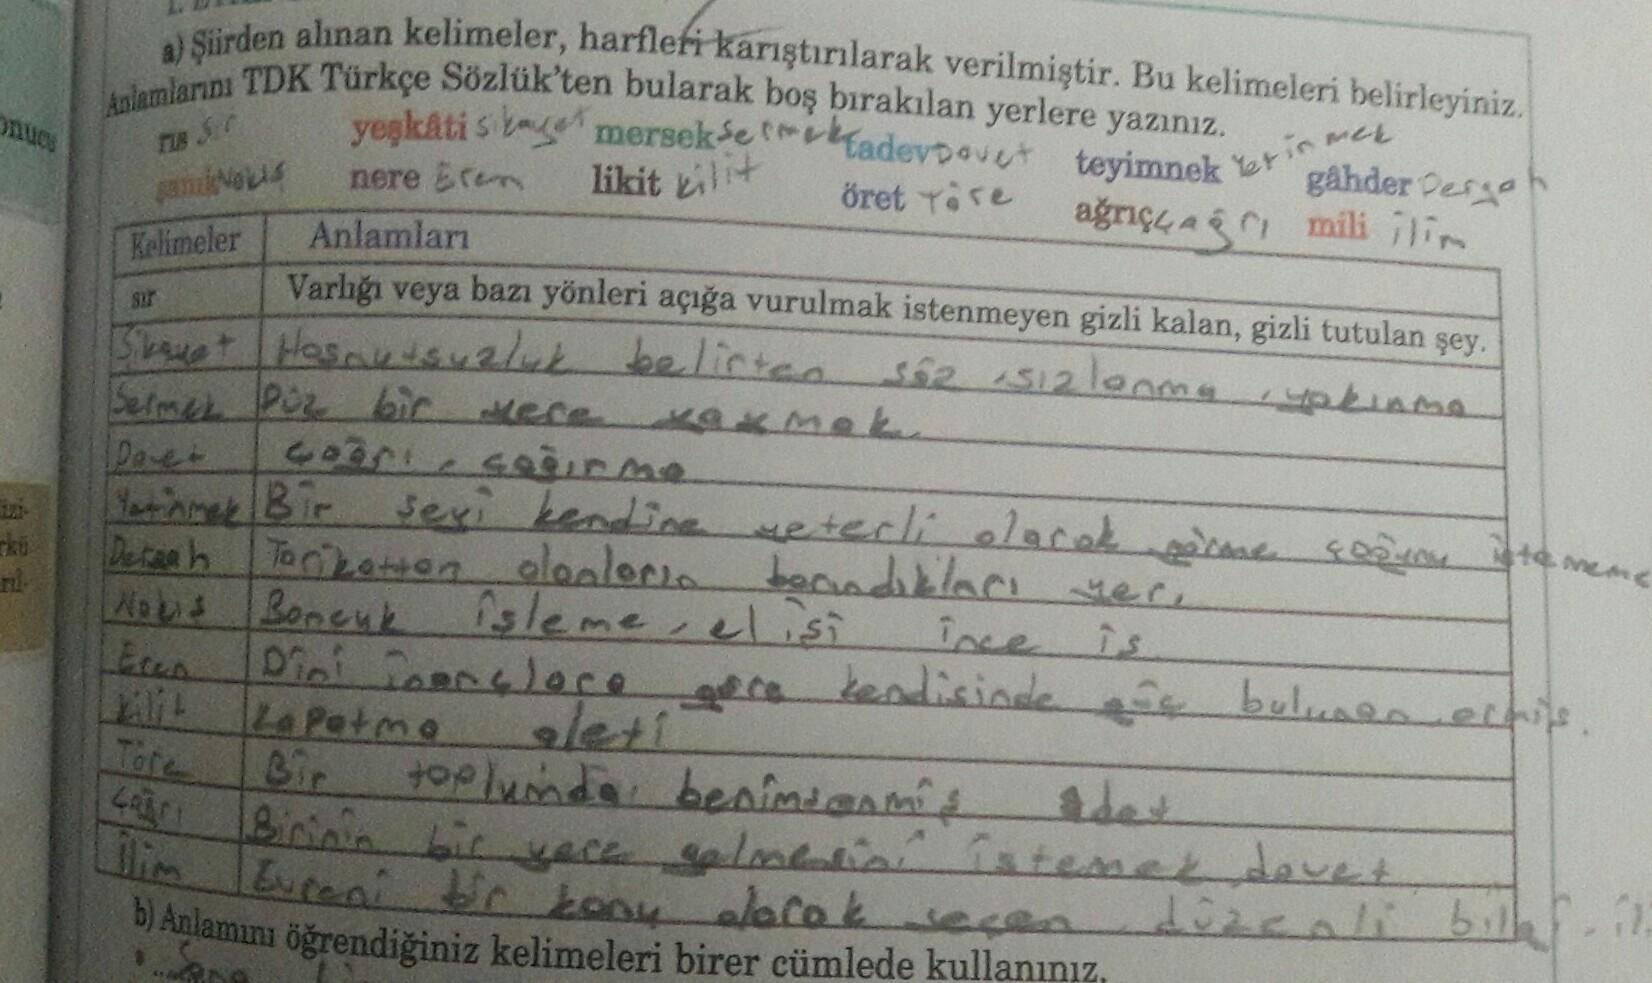 a) Şiirden alınan kelimeler, harfleri karıştırılarak verilmiştir. Bu kelimeleri belirleyiniz.
Anlamlarını TDK Türkçe Sözlük'ten bularak boş bırakılan yerlere yazınız.
rıs Sır yeşkâti Sikayet mersek Sermek tadev Davet teyimnek Yetinmek gâhder Dergah
şanık Nakış nere Eren likit Kilit öret Töre ağrıç Çağrı mili ilim
Kelimeler Anlamları
sır Varlığı veya bazı yönleri açığa vurulmak istenmeyen gizli kalan, gizli tutulan şey.
Şikayet Hoşnutsuzluk belirten söz, sızlanma, yakınma
Sermek Düz bir yere yaymak
Davet çağrı, çağırma
Yetinmek Bir şeyi kendine yeterli olarak görme çoğunu istememe
Dergah Tarikattan olanların barındıkları yer.
Nakış Boncuk işleme, el işi ince iş
Eren Dini inançlara göre kendisinde güç bulunan, ermiş.
Kilit Kapatma aleti
Töre Bir toplumda benimsenmiş adet
Çağrı Birinin bir yere gelmesini istemek, davet
İlim Evreni bir konu olarak seçen, düzenli bilgi,
b) Anlamını öğrendiğiniz kelimeleri birer cümlede kullanınız.